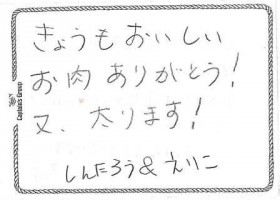 きょうもおいしい
お肉ありがとう!
又、太ります!
しんたろう&えりこ
Captain's Group